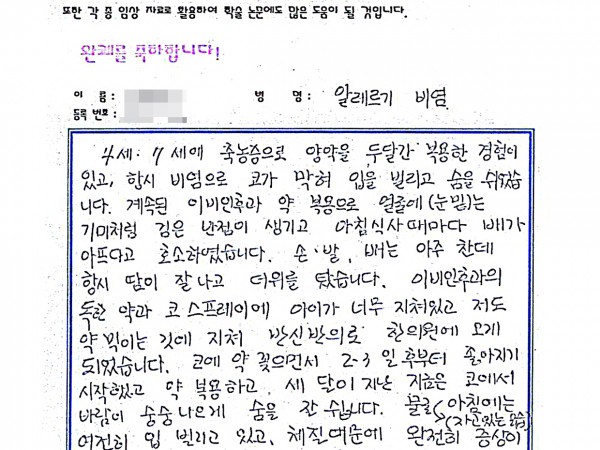 또한 각 종 임상 자료로 활용하여 학술 논문에도 많은 도움이 될 것입니다.
완쾌를 축하합니다!
이 름 : 병 명 : 알레르기 비염
등록 번호 :
4세·7세에 축농증으로 양약을 두달간 복용한 경험이
있고, 항시 비염으로 코가 막혀 입을 벌리고 숨을 쉬었습
니다. 계속된 이비인후과 약 복용으로 얼굴에 (눈밑)는
기미처럼 검은 반점이 생기고 아침식사때마다 배가
아프다고 호소하였습니다. 손·발, 배는 아주 찬데
항시 땀이 잘 나고 더위를 탔습니다. 이비인후과의
독한 약과 코 스프레이에 아이가 너무 지쳐있고 저도
약 먹이는 것에 지쳐 반신반의로 한의원에 오게
되었습니다. 코에 약 꽂으면서 2-3일후부터 좋아지기
시작했고 약 복용하고 세 달이 지난 지금은 코에서
바람이 숭숭나오게 숨을 잘 쉽니다. 아침에는
(자고있는 모습)
여전히 입 벌리고 있고, 체질때문에 완전히 증상이